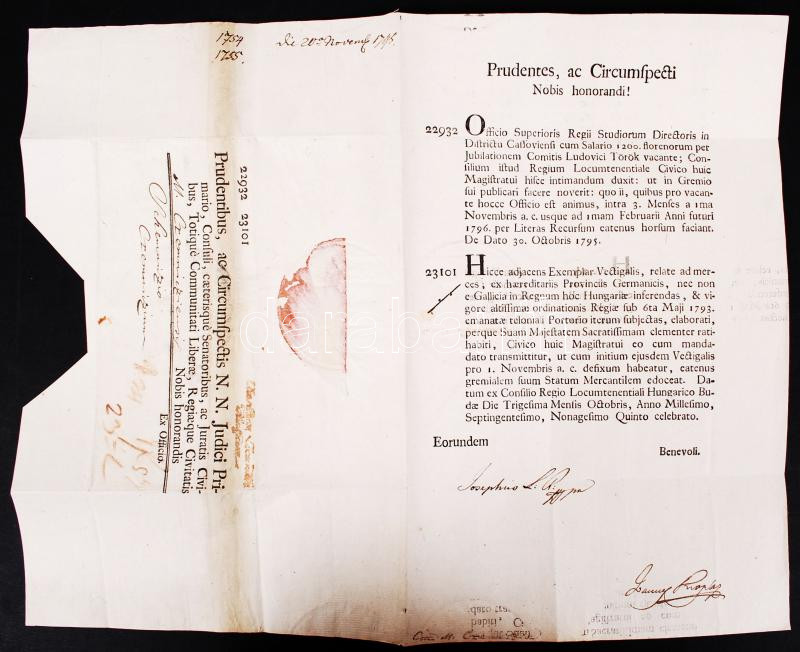 1754
1755.
die 20a Novemb 1795.
Prudentes, ac Circumſpecti
Nobis honorandi!
22932 Officio Superioris Regii Studiorum Directoris in
Diſtrictu Caſſovienſi cum Salario 1200. florenorum per
Jubilationem Comitis Ludovici Török vacante; Con-
ſilium iſtud Regium Locumtenentiale Civico huic
Magiſtratui hiſce intimandum duxit: ut in Gremio
ſui publicari facere noverit: quo ii, quibus pro vacan-
te hocce Officio eſt animus, intra 3. Menſes a 1ma
Novembris a. c. usque ad 1mam Februarii Anni futuri
1796. per Literas Recurſum eatenus horſum faciant.
De Dato 30. Octobris 1795.
23101 Hicce adjacens Exemplar Vectigalis, relate ad mer-
ces, ex hæreditariis Provinciis Germanicis, nec non
e Gallicia in Regnum hoc Hungariæ inferendas, & vi-
gore altiſſimæ ordinationis Regiæ ſub 6ta Maji 1793.
emanatæ telonali Portorio iterum ſubjectas, elaborati,
perque Suam Majeſtatem Sacratiſſimam clementer rati-
habiti, Civico huic Magiſtratui eo cum man-
dato transmittitur, ut cum initium ejusdem Vectigalis
pro 1. Novembris a. c. defixum habeatur, eatenus
gremialem ſuum Statum Mercantilem edoceat. Da-
tum ex Conſilio Regio Locumtenentiali Hungarico Bu-
dæ Die Trigeſima Menſis Octobris, Anno Milleſimo,
Septingenteſimo, Nonageſimo Quinto celebrato.
Eorundem
Benevoli.
22932 23101
Prudentibus, ac Circumſpectis N. N. Judici Pri-
mario, Conſuli, cæterisquè Senatoribus, ac Juratis Civi-
bus, Totiquè Communitati Liberæ, Regiæque Civitatis
Nobis honorandis
Ex Officio.
darabanth